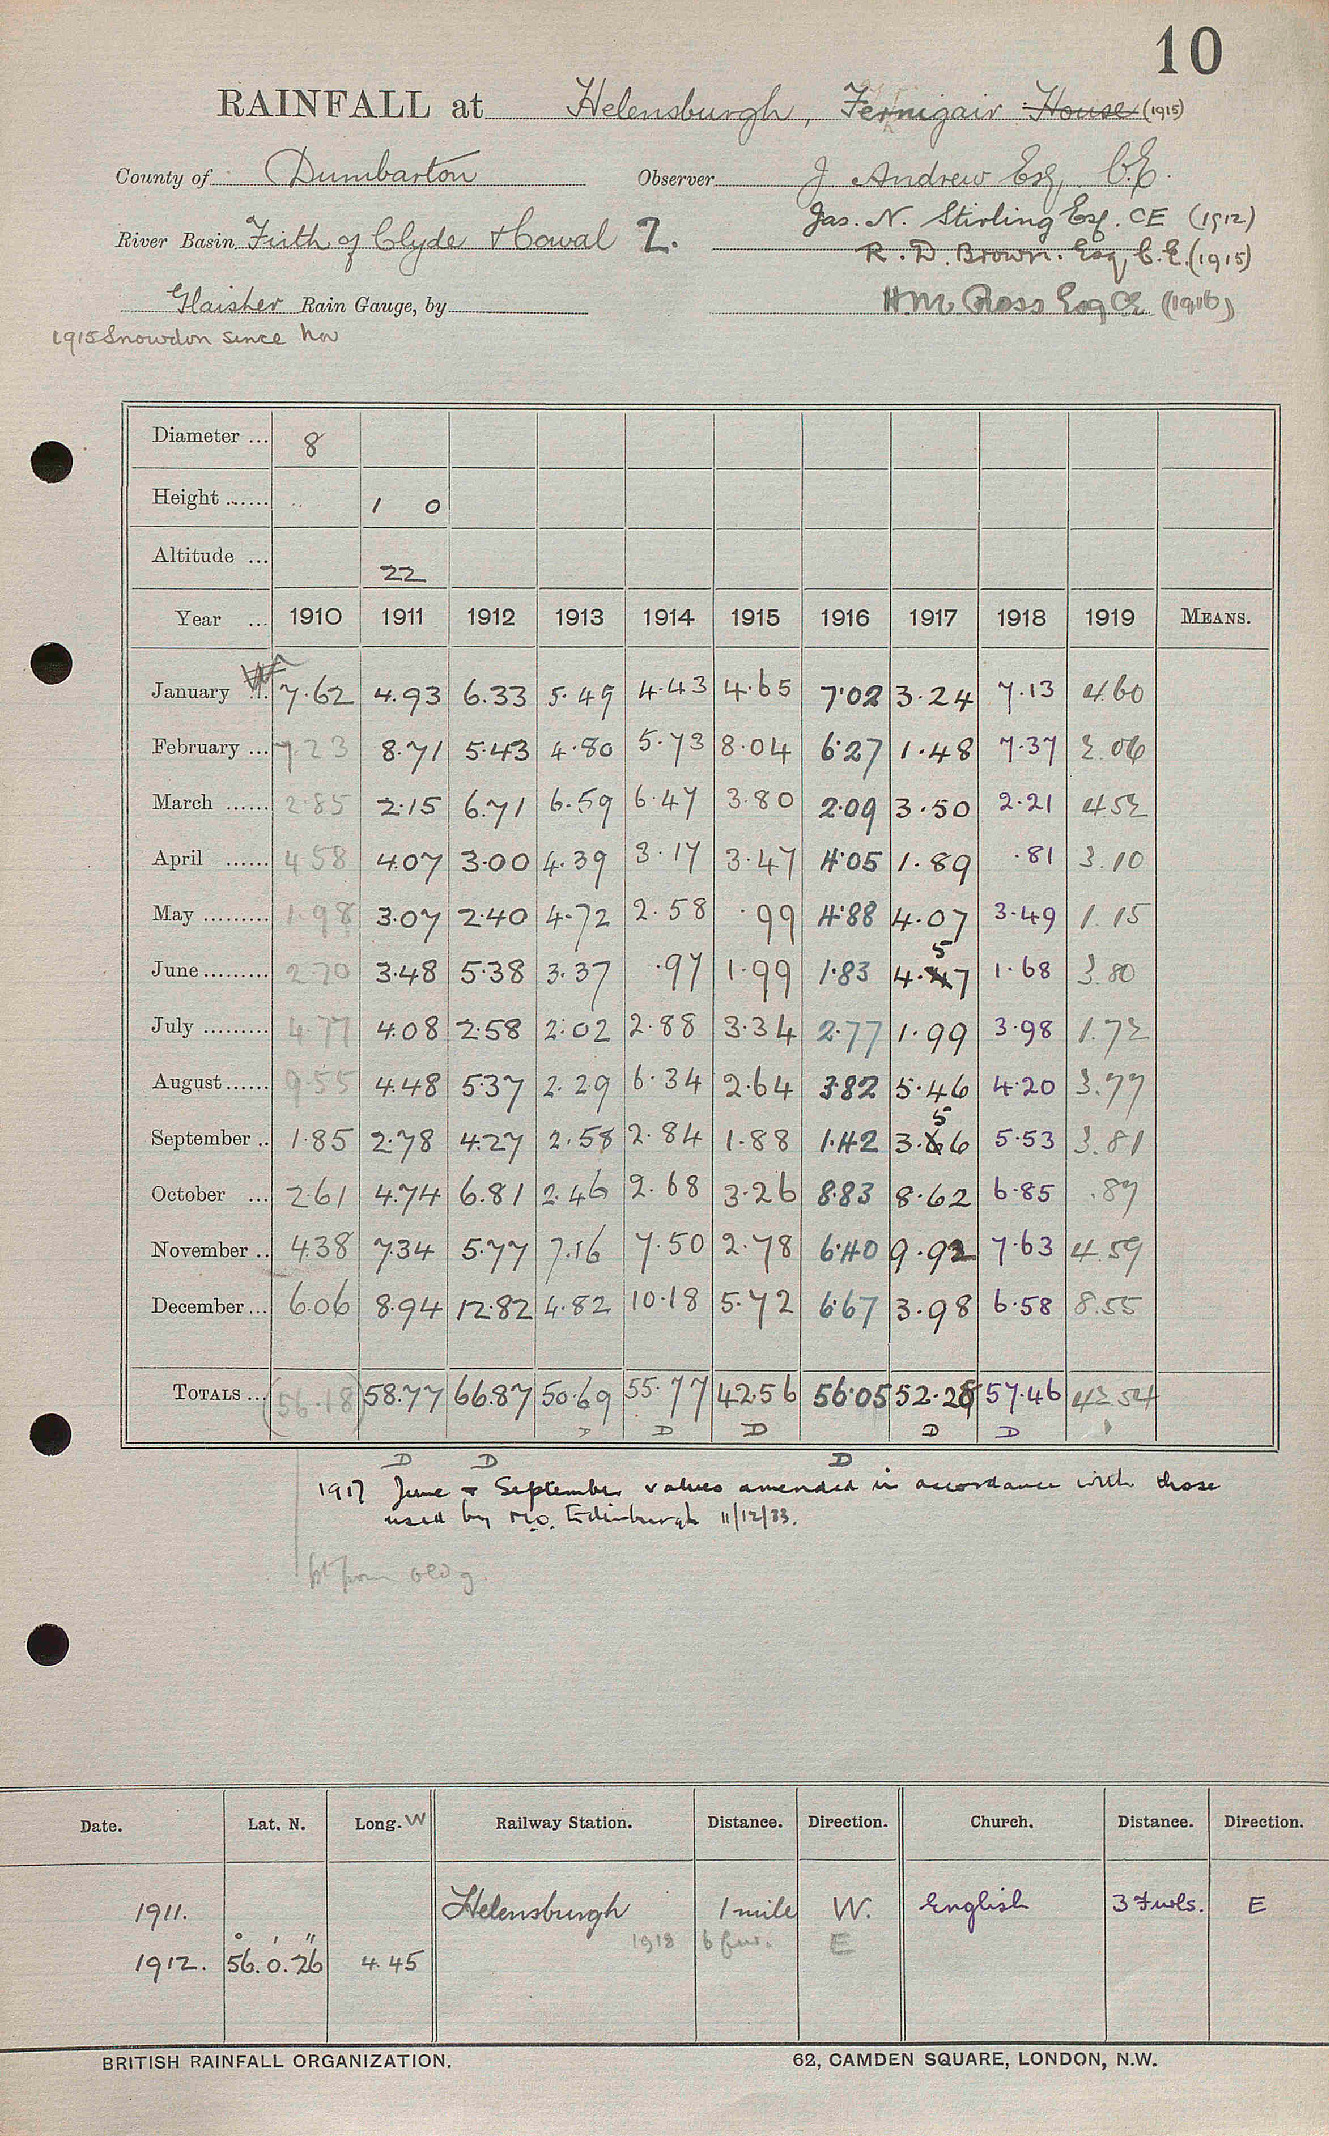 10
RAINFALL at Helensburgh, Fernigair House (1915)
County of Dumbarton Observer J Andrew Esq, C.E.
Jas. N. Stirling Esq. CE (1912)
River Basin Firth of Clyde & Cowal 2. R. D. Brown. Esq, C.E. (1915)
Glaisher Rain Gauge, by H M Ross Esq CE (1916)
1915 Snowdon since Nov
Diameter ... 8
Height ...... 1 0
Altitude ... 22
Year ... 1910 1911 1912 1913 1914 1915 1916 1917 1918 1919 MEANS.
January ... 7.62 4.93 6.33 5.49 4.43 4.65 7.02 3.24 7.13 4.60
February ... 7.23 8.71 5.43 4.80 5.73 8.04 6.27 1.48 7.37 2.06
March ...... 2.85 2.15 6.71 6.59 6.47 3.80 2.09 3.50 2.21 4.52
April ...... 4.58 4.07 3.00 4.39 3.17 3.47 4.05 1.89 .81 3.10
May ......... 1.98 3.07 2.40 4.72 2.58 .99 4.88 4.07 3.49 1.15
5
June ......... 2.70 3.48 5.38 3.37 .97 1.99 1.83 4.47 1.68 3.80
July ......... 4.77 4.08 2.58 2.02 2.88 3.34 2.77 1.99 3.98 1.72
August ...... 9.55 4.48 5.37 2.29 6.34 2.64 3.82 5.46 4.20 3.77
5
September .. 1.85 2.78 4.27 2.58 2.84 1.88 1.42 3.66 5.53 3.81
October ... 2.61 4.74 6.81 2.46 2.68 3.26 8.83 8.62 6.85 .87
November .. 4.38 7.34 5.77 7.16 7.50 2.78 6.40 9.92 7.63 4.59
December ... 6.06 8.94 12.82 4.82 10.18 5.72 6.67 3.98 6.58 8.55
TOTALS ... (56.18) 58.77 66.87 50.69 55.77 42.56 56.05 52.28 57.46 42.54
D D D D D D
D D D
1917 June & September values amended in accordance with those
used by M.O. Edinburgh 11/12/33.
Date. Lat. N. Long. W Railway Station. Distance. Direction. Church. Distance. Direction.
1911. Helensburgh 1 mile W. English 3 Furls. E
1918 6 fur. E
1912. 56° 0' 26" 4.45
BRITISH RAINFALL ORGANIZATION. 62, CAMDEN SQUARE, LONDON, N.W.